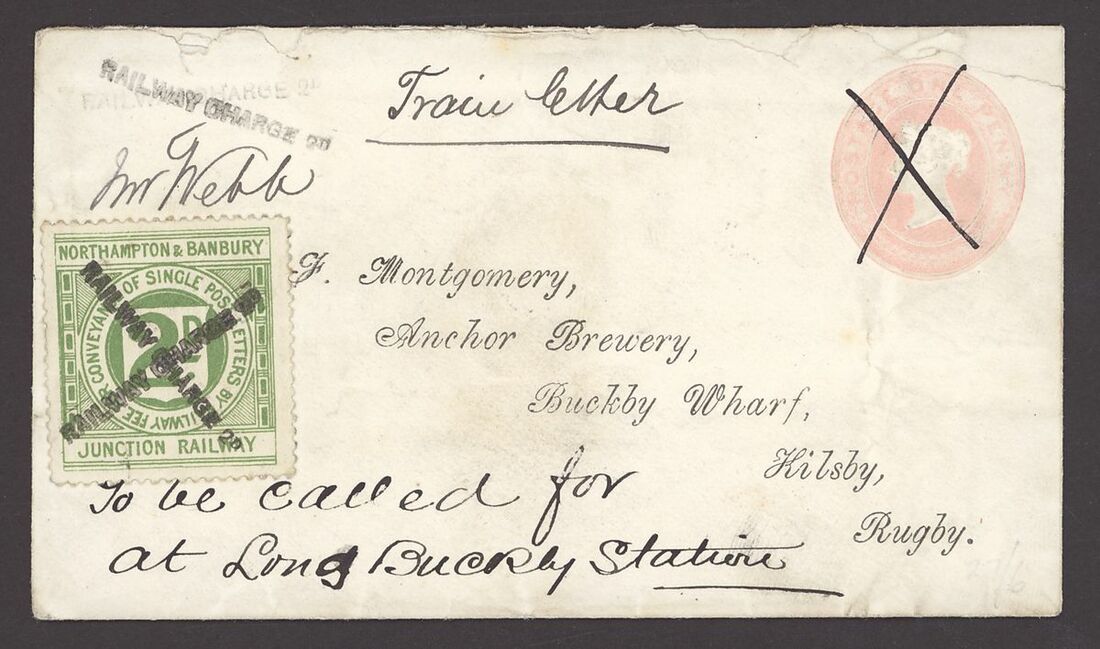 RAILWAY CHARGE 2D
RAILWAY CHARGE 2D
Train letter
POSTAGE ONE PENNY
Mr Webb
NORTHAMPTON & BANBURY
FEE FOR CONVEYANCE OF SINGLE POST LETTERS BY RAILWAY
2D
JUNCTION RAILWAY
RAILWAY CHARGE 2D
RAILWAY CHARGE 2D
F. Montgomery,
Anchor Brewery,
Buckby Wharf,
Kilsby,
Rugby.
To be called for
at Long Buckby Station
27/6